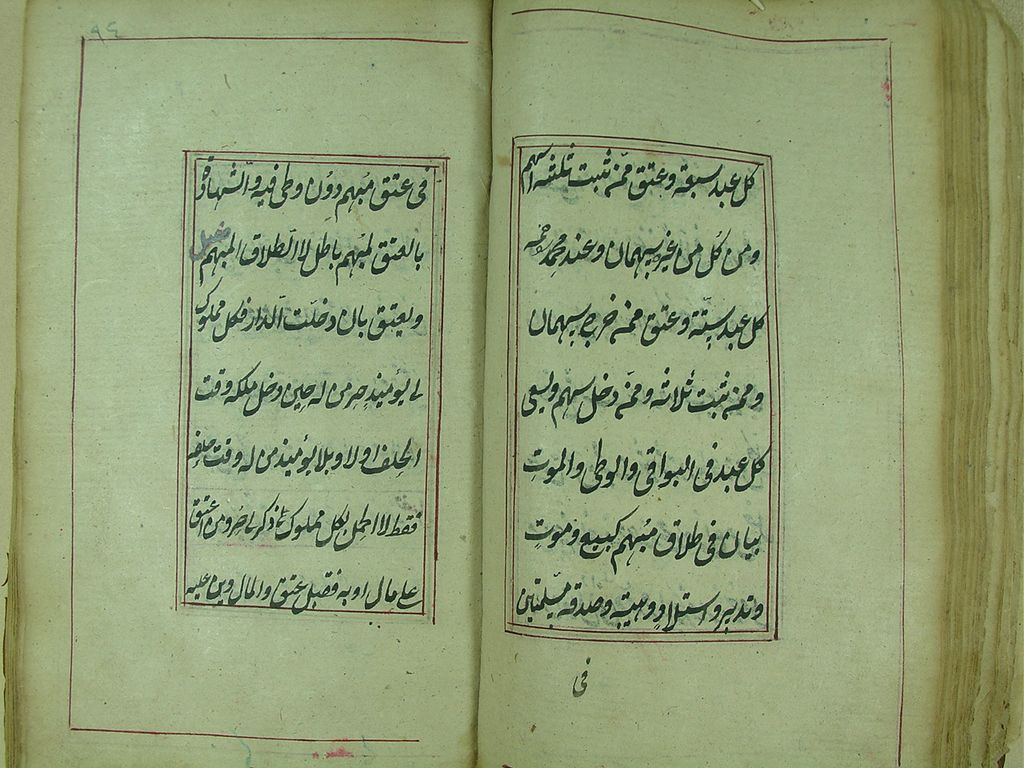 كل عبد سبعة وعتق ممن ثبت ثلثة اسهم
ومن كل من غيره سهمان وعند محمد رحمه
كل عبد ستة وعتق ممن خرج سهمان
وممن ثبت ثلاثة وممن دخل سهم ويسعى
كل عبد فى البواقى والوطى والموت
بيان فى طلاق مبهم كبيع وموت
وتدبير واستيلاد وهبة وصدقة مسلمتين
فى
٩٤
فى عتق مبهم دون وطى فيه والشهادة
بالعتق المبهم باطل لا الطلاق المبهم
ويعتق بان دخلت الدار فكل مملوك
لى يومئذ حر من له حين دخل ملكه وقت
الحلف اولا وبلا يومئذ من له وقت حلفه
فقط لا الحمل بكل مملوك لى ذكر حر ومن اعتق
على مال او به فقبل عتق والمال دين عليه